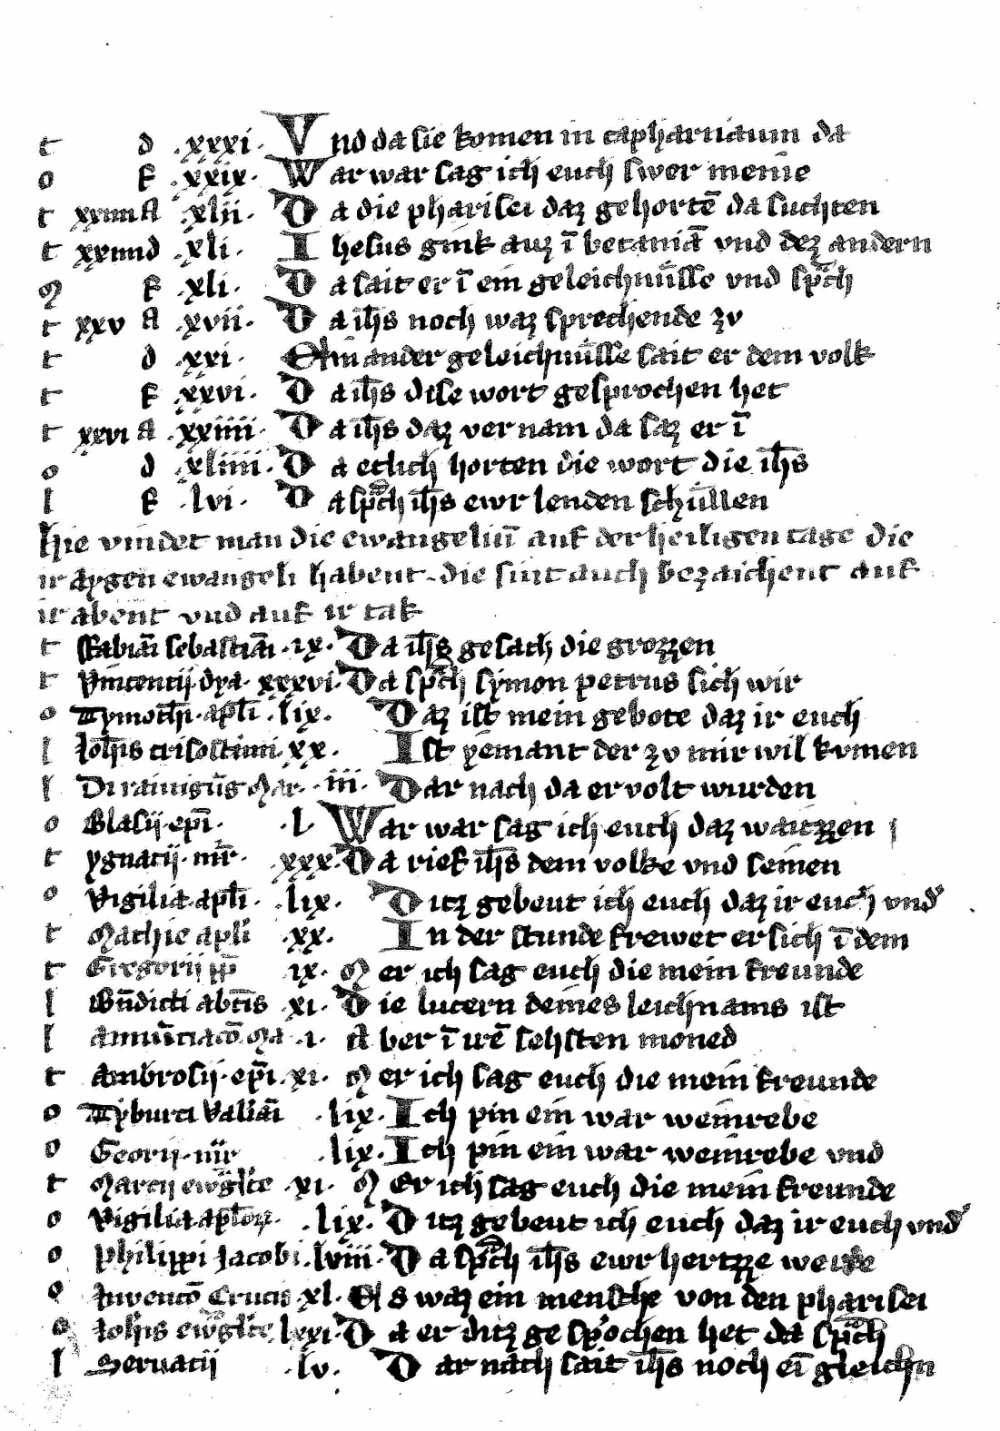 t d .xxxi. Vnd da sie komen in capharnaum da
o f .xxix. War war sag ich euch swer meine
t xxiiii A .xlii. Da die pharisei daz gehortē da suchten
t xxiiii d .xli. Ihesus gink auz ī betaniā vnd dez andern
f .xli. Da sait er ī ein geleichnüsse vnd sprͣch
t xxv A .xvii. Da ih̄s noch waz sprechende zv
t d .xxi. Ein ander geleichnüsse sait er dem volk
t f .xxvi. Da ih̄s dise wort gesprochen het
t xxvi A .xxiiii. Da ih̄s daz vernam da saz er ī
o d .xliiii. Da etlich horten die wort die ih̄s
l f .lvi. Da sprͣch ih̄s ewr lenden schüllen
hie vindet man die ewangeliū auf der heiligen tage die
ir aygen ewangeli habent. die sint auch bezaichent auf
ir abent vnd auf ir tak
t Fabiāi sebastiāi .ix. Da ih̄s gesach die grozzen
t Vincentij dya. xxxvi. Da sprͣch symon petrus sich wir
o Tymoth̄i. apl̄i .lix. Daz ist mein gebote daz ir euch
l Joh̄is crisostimi .xx. Ist yemant der zv mir wil kvmen
l .iii. Dar nach da ervolt wurden
o Blasij ep̄i. .l. War war sag ich euch daz waitzzen
t ygnacij. mr̄. xxx. Da rief ih̄s dem volke vnd seinen
o Vigilia. apl̄i .lix. Ditz gebeut ich euch daz ir euch vnd
t Mathie apl̄i .xx. In der stunde frewet er sich ī dem
t Gregorij pp̄ ix. Mer ich sag euch die mein freunde
l Bn̄dicti abt̄is xi. Die lucern deines leichnams ist
l Annūciacō. Ma .i. Aber ī irē sehsten moned
t Ambrosij. ep̄i. xi. Mer ich sag euch die mein freunde
o Tyburci Valiāi .lix. Ich pin ein war weinrebe
o Georij. mr̄ .lix. Ich pin ein war weinrebe vnd
t Marcij ewḡlte .xi. Mer ich sag euch die mein freunde
o Vigilia. apl̄oꝝ. .lix. Ditz gebeut ich euch daz ir euch vnd
o Philippi Jacobi .lviii. Da sprͣch ih̄s ewr hertzze werde
e Jnvencō Crucis xl. Es waz ein mensche von den pharisei
o Joh̄is ewḡlte lxxi. Da er ditz gesprochen het da sprͣch
l Seruacij .lv. Dar nach sait ih̄s noch eī gleichn